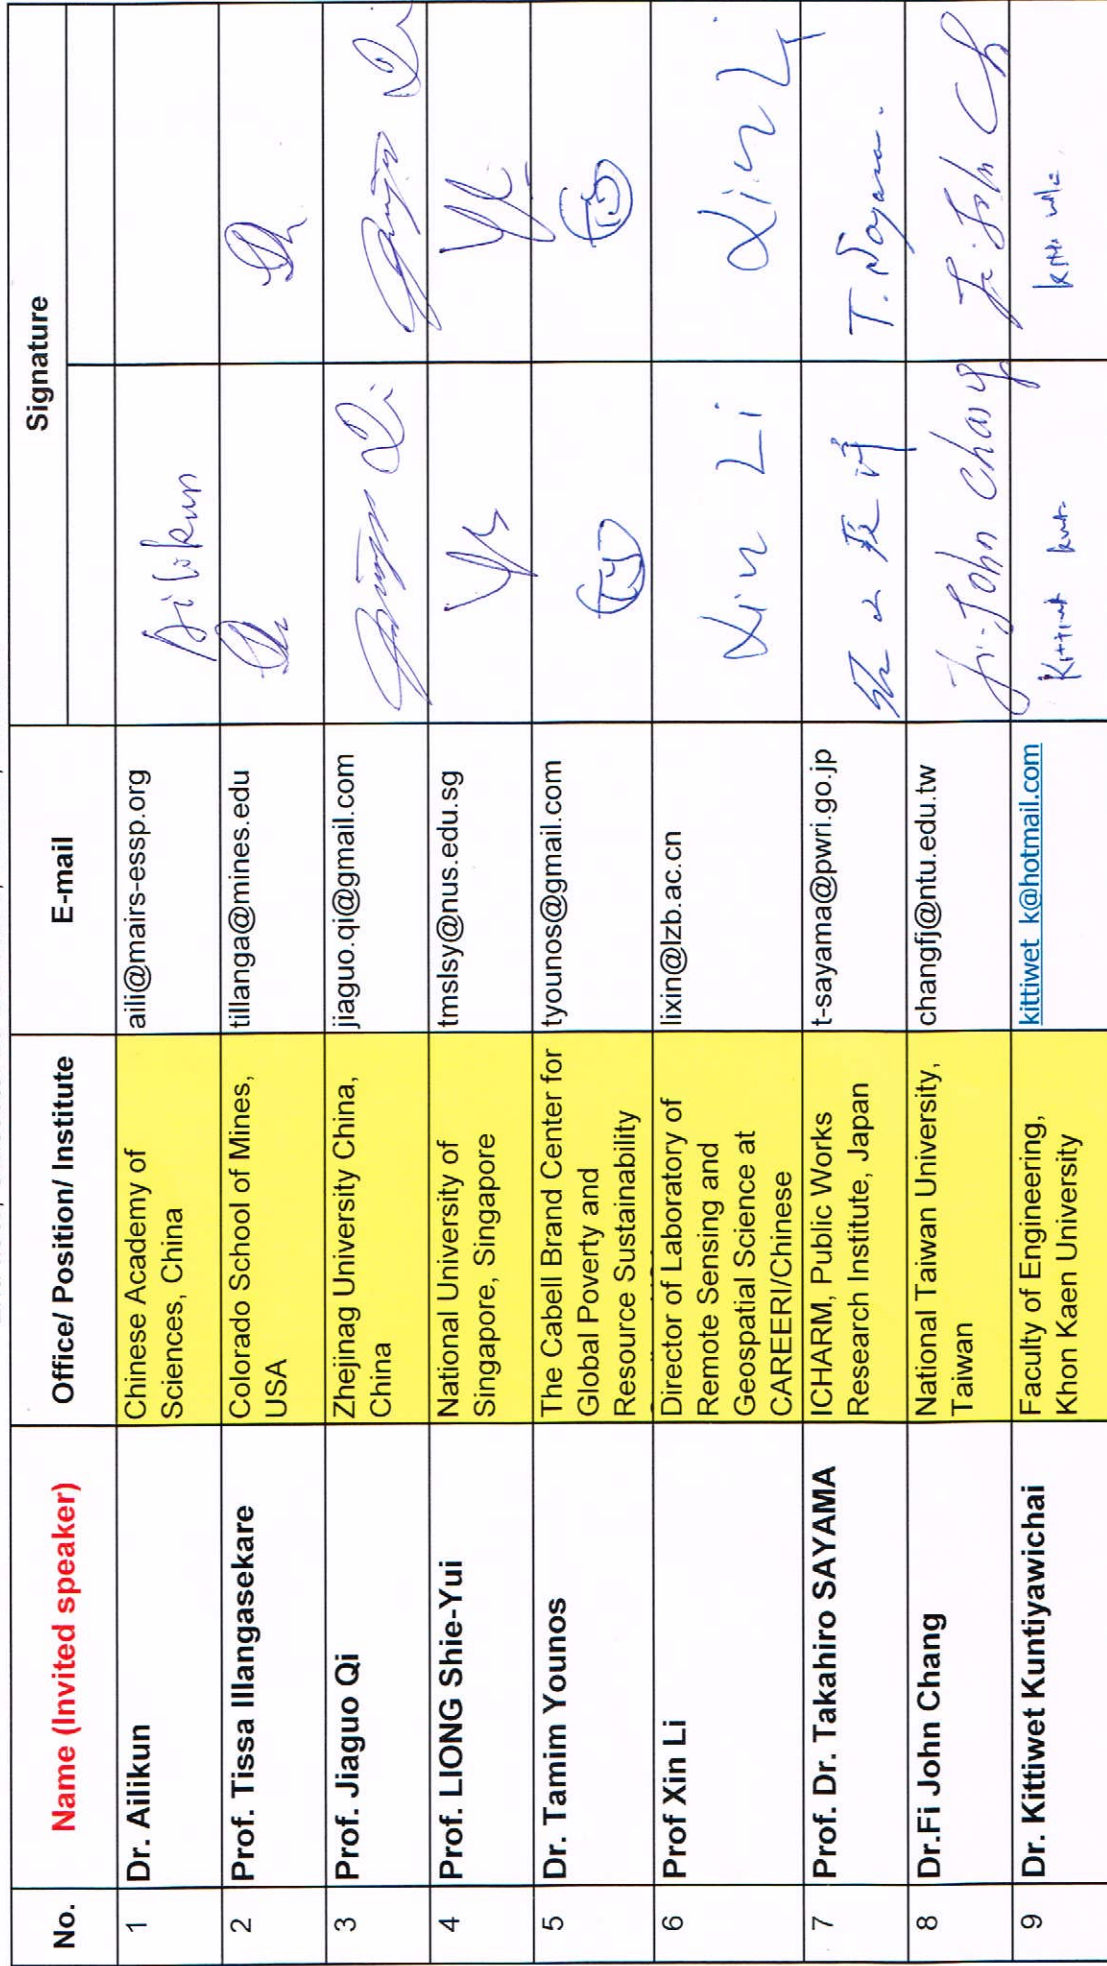 No.
Name (Invited speaker)
Office/ Position/ Institute
E-mail
Signature
1
Dr. Ailikun
Chinese Academy of
Sciences, China
aili@mairs-essp.org
Ailikun
2
Prof. Tissa Illangasekare
Colorado School of Mines,
USA
tillanga@mines.edu
3
Prof. Jiaguo Qi
Zhejinag University China,
China
jiaguo.qi@gmail.com
4
Prof. LIONG Shie-Yui
National University of
Singapore, Singapore
tmslsy@nus.edu.sg
5
Dr. Tamim Younos
The Cabell Brand Center for
Global Poverty and
Resource Sustainability
tyounos@gmail.com
6
Prof Xin Li
Director of Laboratory of
Remote Sensing and
Geospatial Science at
CAREERI/Chinese
lixin@lzb.ac.cn
Xin Li
Xin Li
7
Prof. Dr. Takahiro SAYAMA
ICHARM, Public Works
Research Institute, Japan
t-sayama@pwri.go.jp
T. Sayama.
8
Dr.Fi John Chang
National Taiwan University,
Taiwan
changfj@ntu.edu.tw
Fi-John Chang
Fi-John Ch
9
Dr. Kittiwet Kuntiyawichai
Faculty of Engineering,
Khon Kaen University
kittiwet_k@hotmail.com